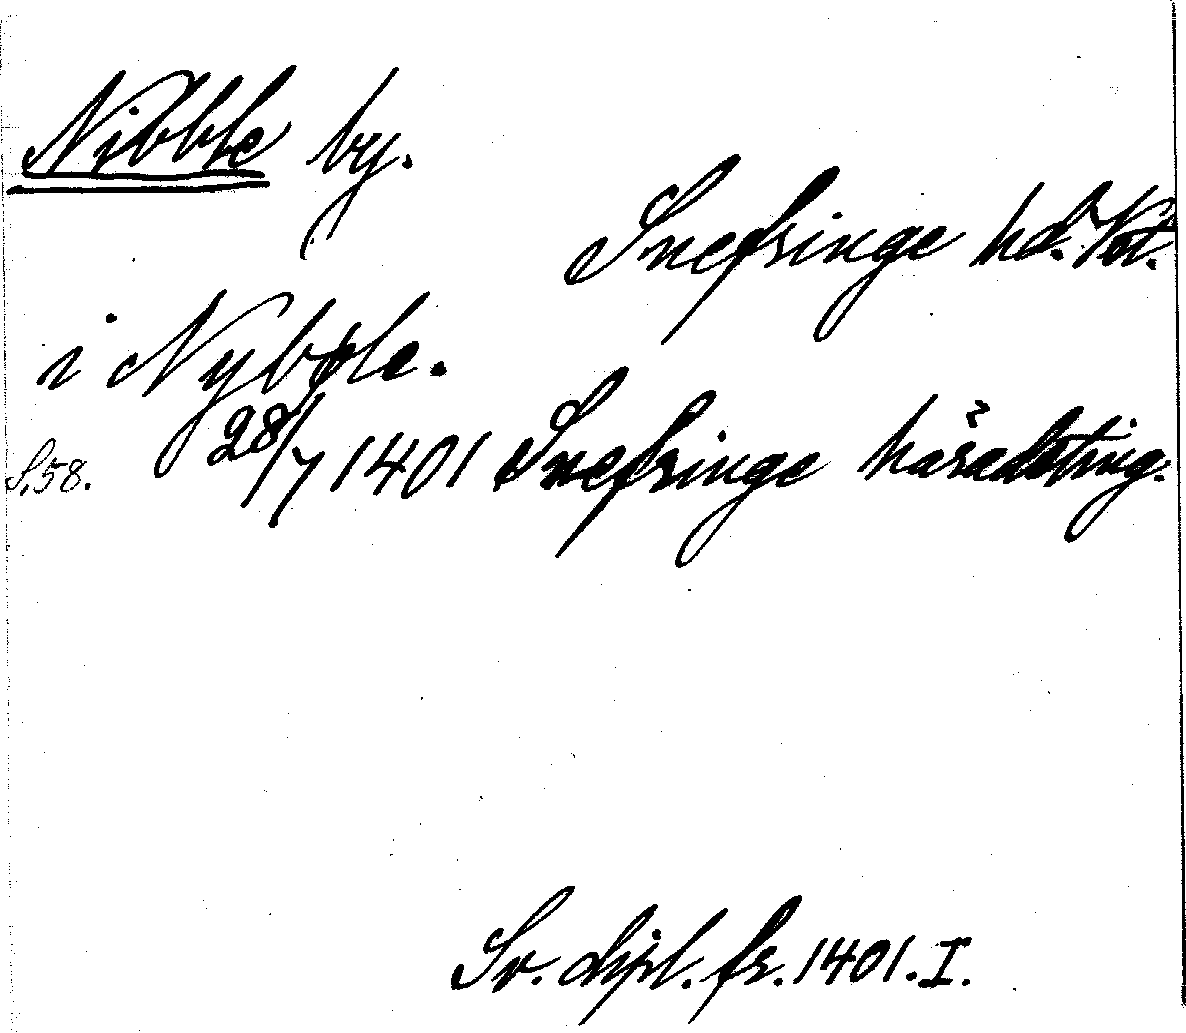 Nibble by.
Snefringe hd. Vst.
i Nybble.
S.58. 28/7 1401 Snefringe häradsting.
Sv. dipl. fr. 1401. I.